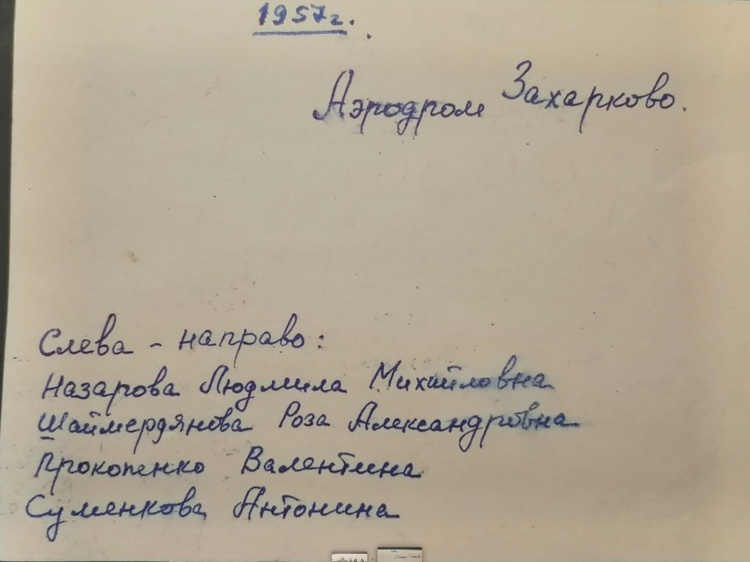 1957г.
Аэродром Захарково.
Слева - направо:
Назарова Людмила Михайловна
Шаймердянова Роза Александровна
Прокопенко Валентина
Суменкова Антонина